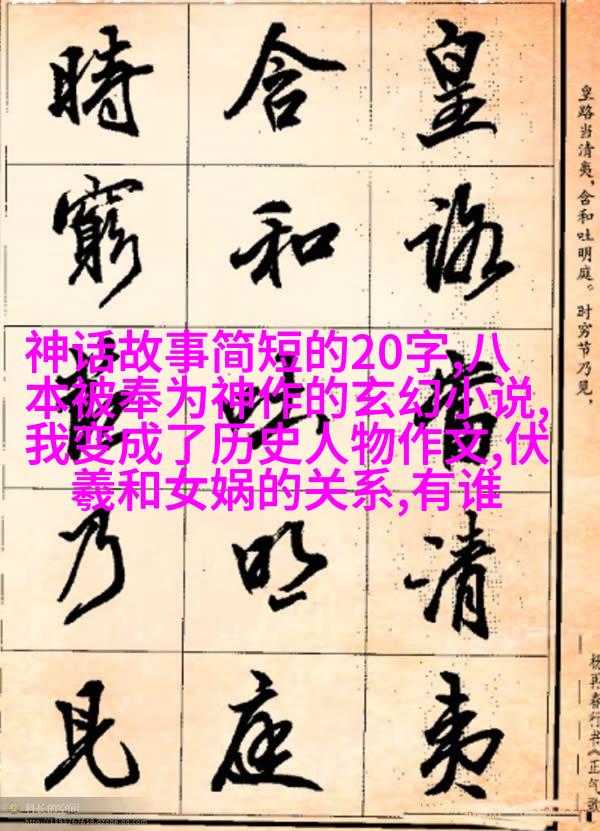 神话故事简短的20字,八
本被奉为神作的玄幻小说,
我变成了历史人物作文,伏
羲和女娲的关系,有谁
皇路當清夷
含和吐明庭
時窮節乃見
皇路当清夷，含和吐明庭。时穷节乃见，
杨再春行书《正气歌
科长的空间